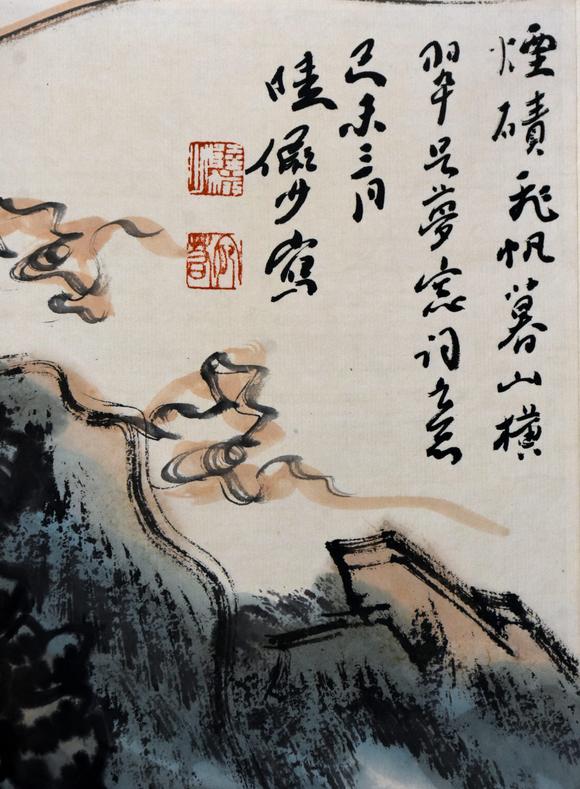 煙磧飛帆暮山橫
翠吳夢窓詞意
己未三月
陸儼少寫